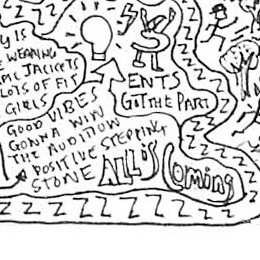 Y IS
WEARING
JACKETS
LOTS OF FIT
GIRLS
ENTS
GOT THE PART
GOOD VIBES
GONNA WIN
THE AUDITION
POSITIVE STEPPING
STONE
ALL is Coming